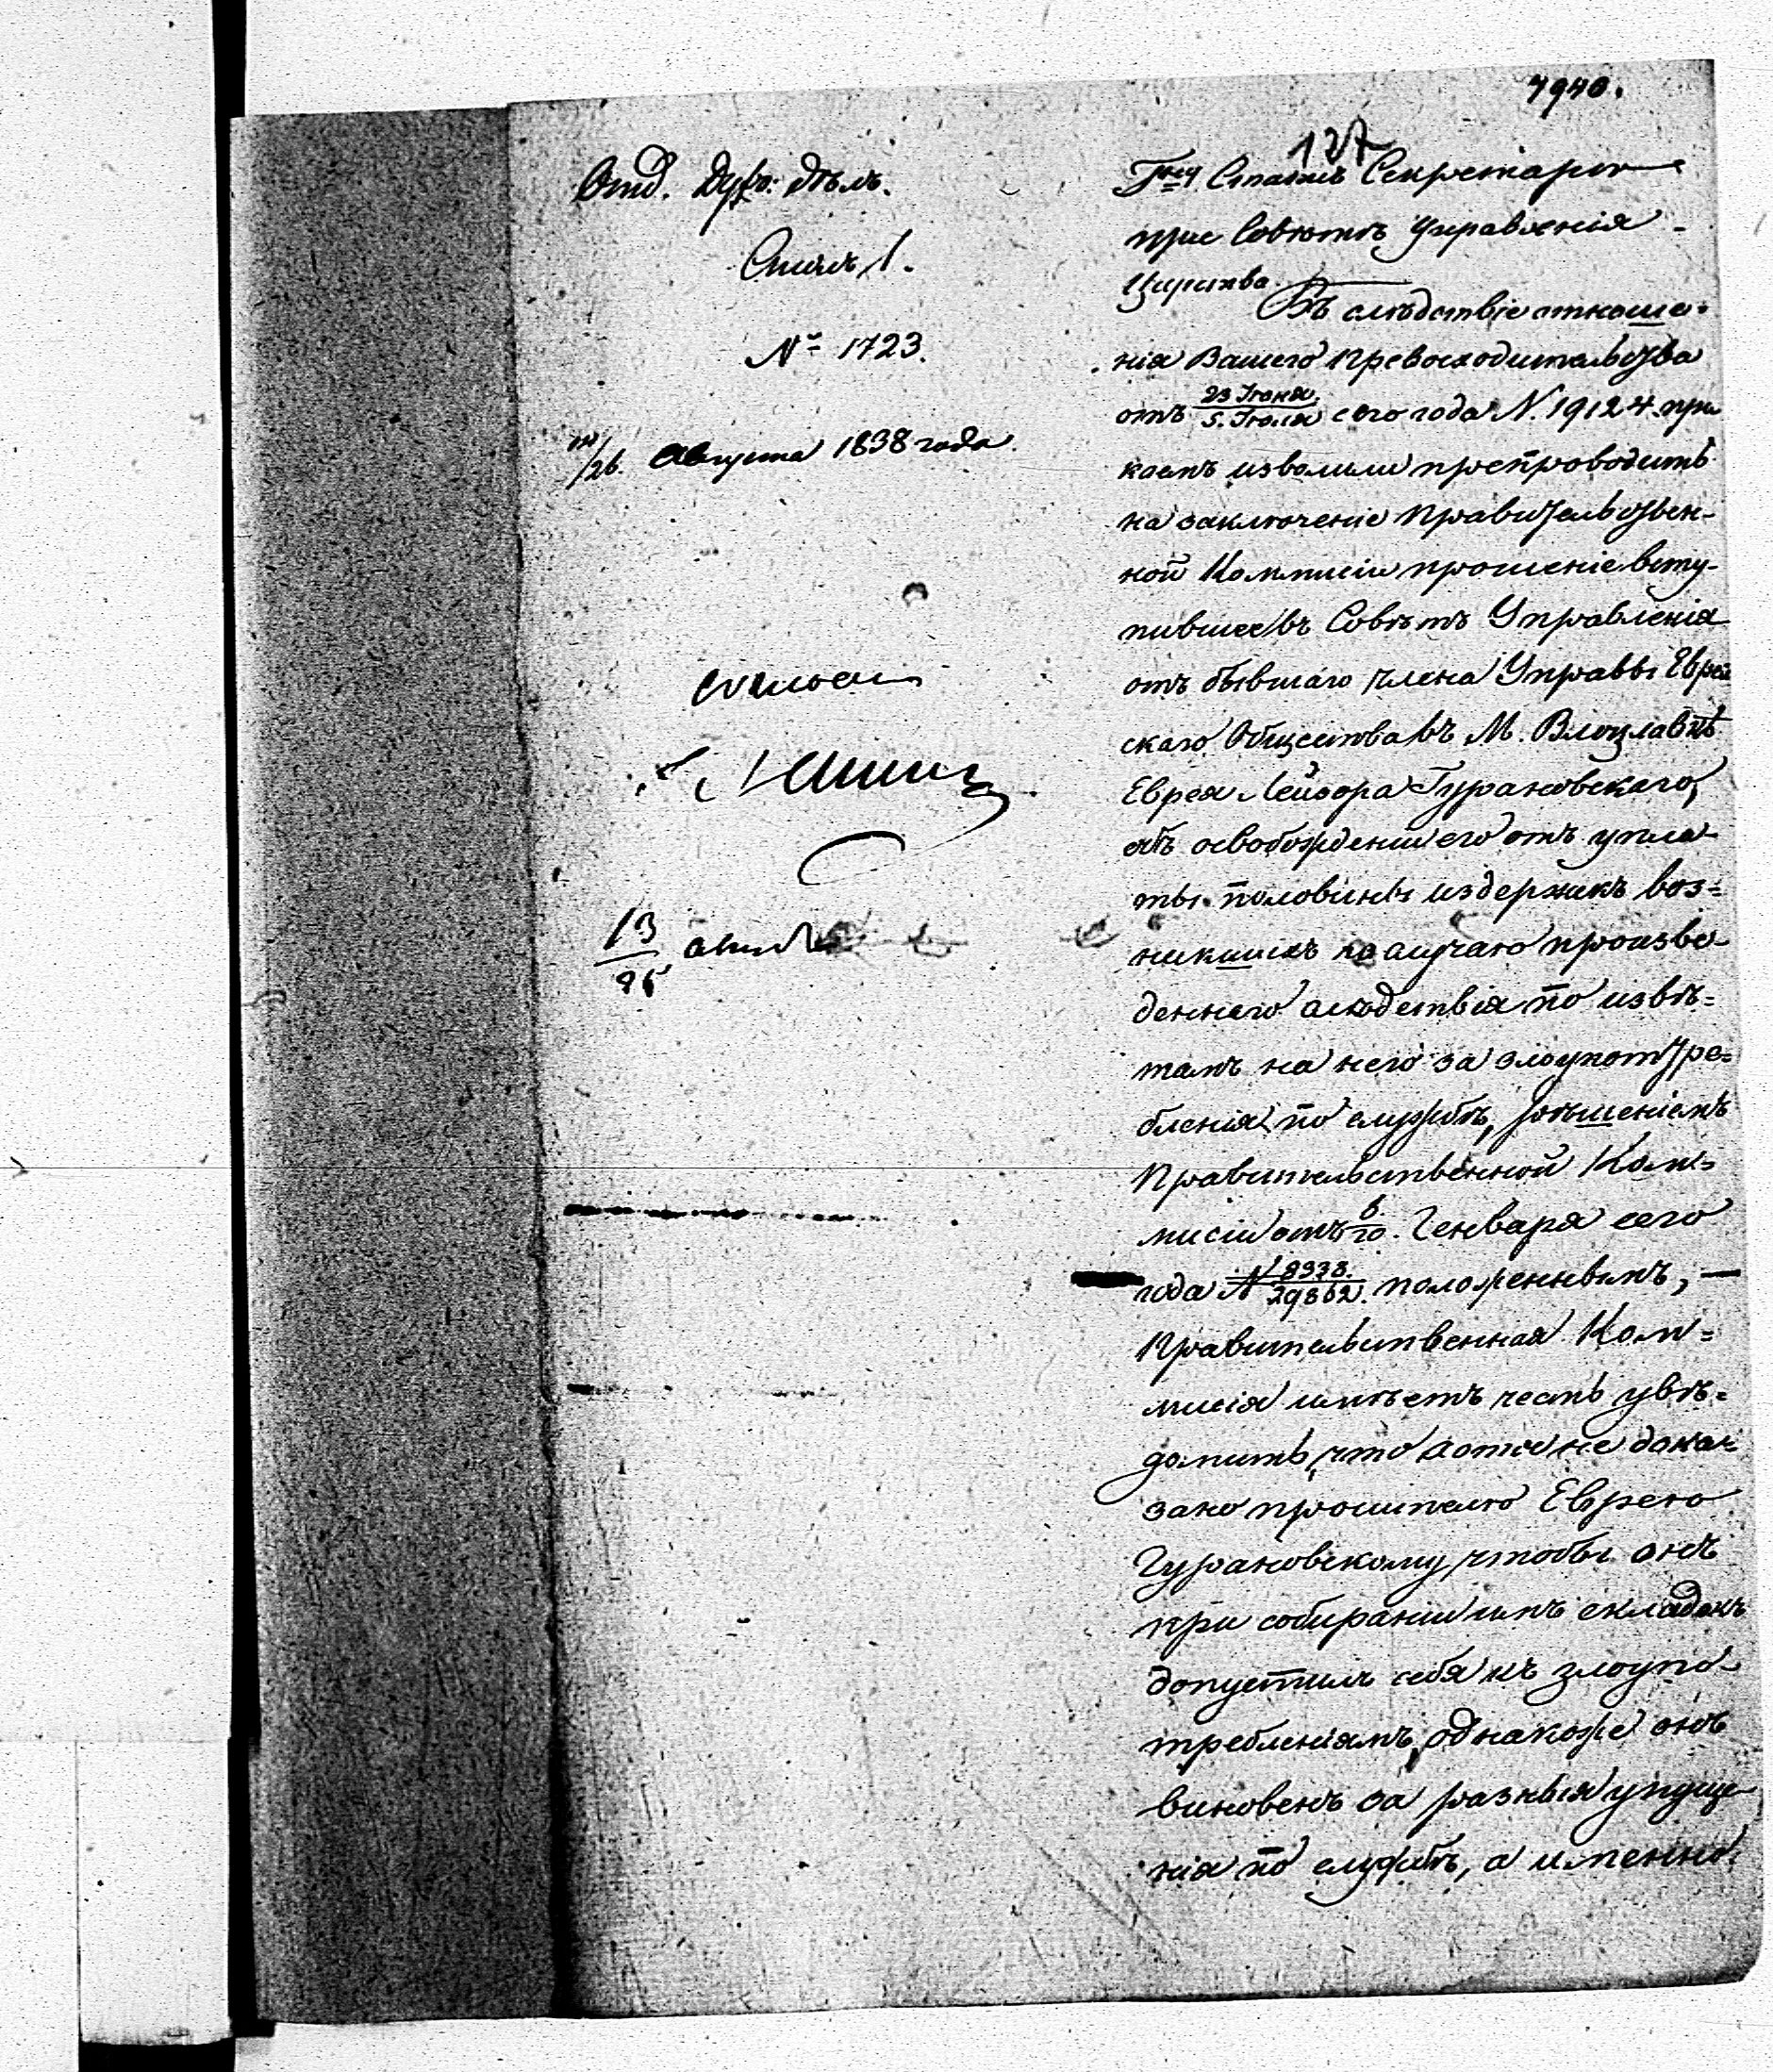 7940.
127
Отд. Дух: дѣлъ.
Столъ 1.
№ 1723.
14/26. Августа 1838 года.
13/25
Г-ну Статсъ Секретарю
при Совѣтѣ Управленія
Царства.
Въ слѣдствіе отноше-
нія Вашего Превосходительства
отъ 23 Іюня/5. Іюля сего года N. 19124. при
коемъ изволили препроводить
на заключеніе Правительствен-
ной Коммисіи прошеніе всту-
пившее въ Совѣтъ Управленія
отъ бывшаго члена Управы Еврей
скаго Общества въ М. Влоцлавкѣ
Еврея Лейзора Гурановскаго,
объ освобожденіи его отъ упла
ты половины издержекъ воз=
никшихъ по случаю произве
деннаго слѣдствія по извѣ=
тамъ на него за злоупотре=
бленія по службѣ, рѣшеніемъ
Правительственной Ком=
мисіи отъ 8/20. Генваря сего
года N 8938./29862. положеннымъ, —
Правительственная Ком=
мисія имѣетъ честь увѣ=
домить, что хотя не дока=
зано просителю Еврею
Гурановскому, чтобы онъ
при собираніи имъ складокъ
допустилъ себя къ злоупо
требленіямъ, однакоже онъ
виновенъ за разныя упуще
нія по службѣ, а именно: